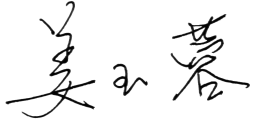 姜玉蓉